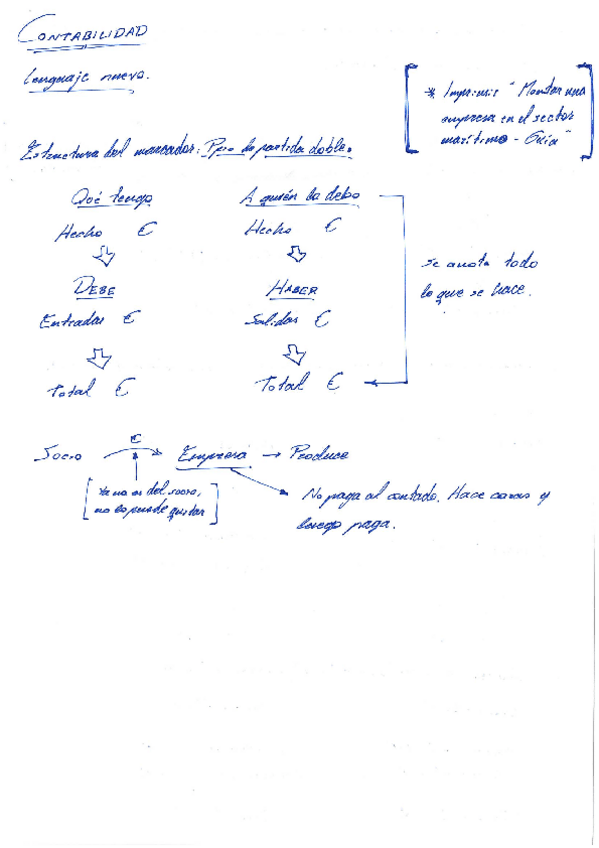 CONTABILIDAD
Lenguaje nuevo.
* Imprimir "Montar una
empresa en el sector
marítimo - Guía"
Estructura del marcador: Ppio de partida doble.
Qué tengo
A quién lo debo
Hecho €
Hecho €
DEBE
HABER
Entradas €
Salidas €
Total €
Total €
Se anota todo
lo que se hace.
€
Socio
Empresa → Produce
Ya no es del socio,
no lo puede gastar
No paga al contado. Hace cosas y
luego paga.